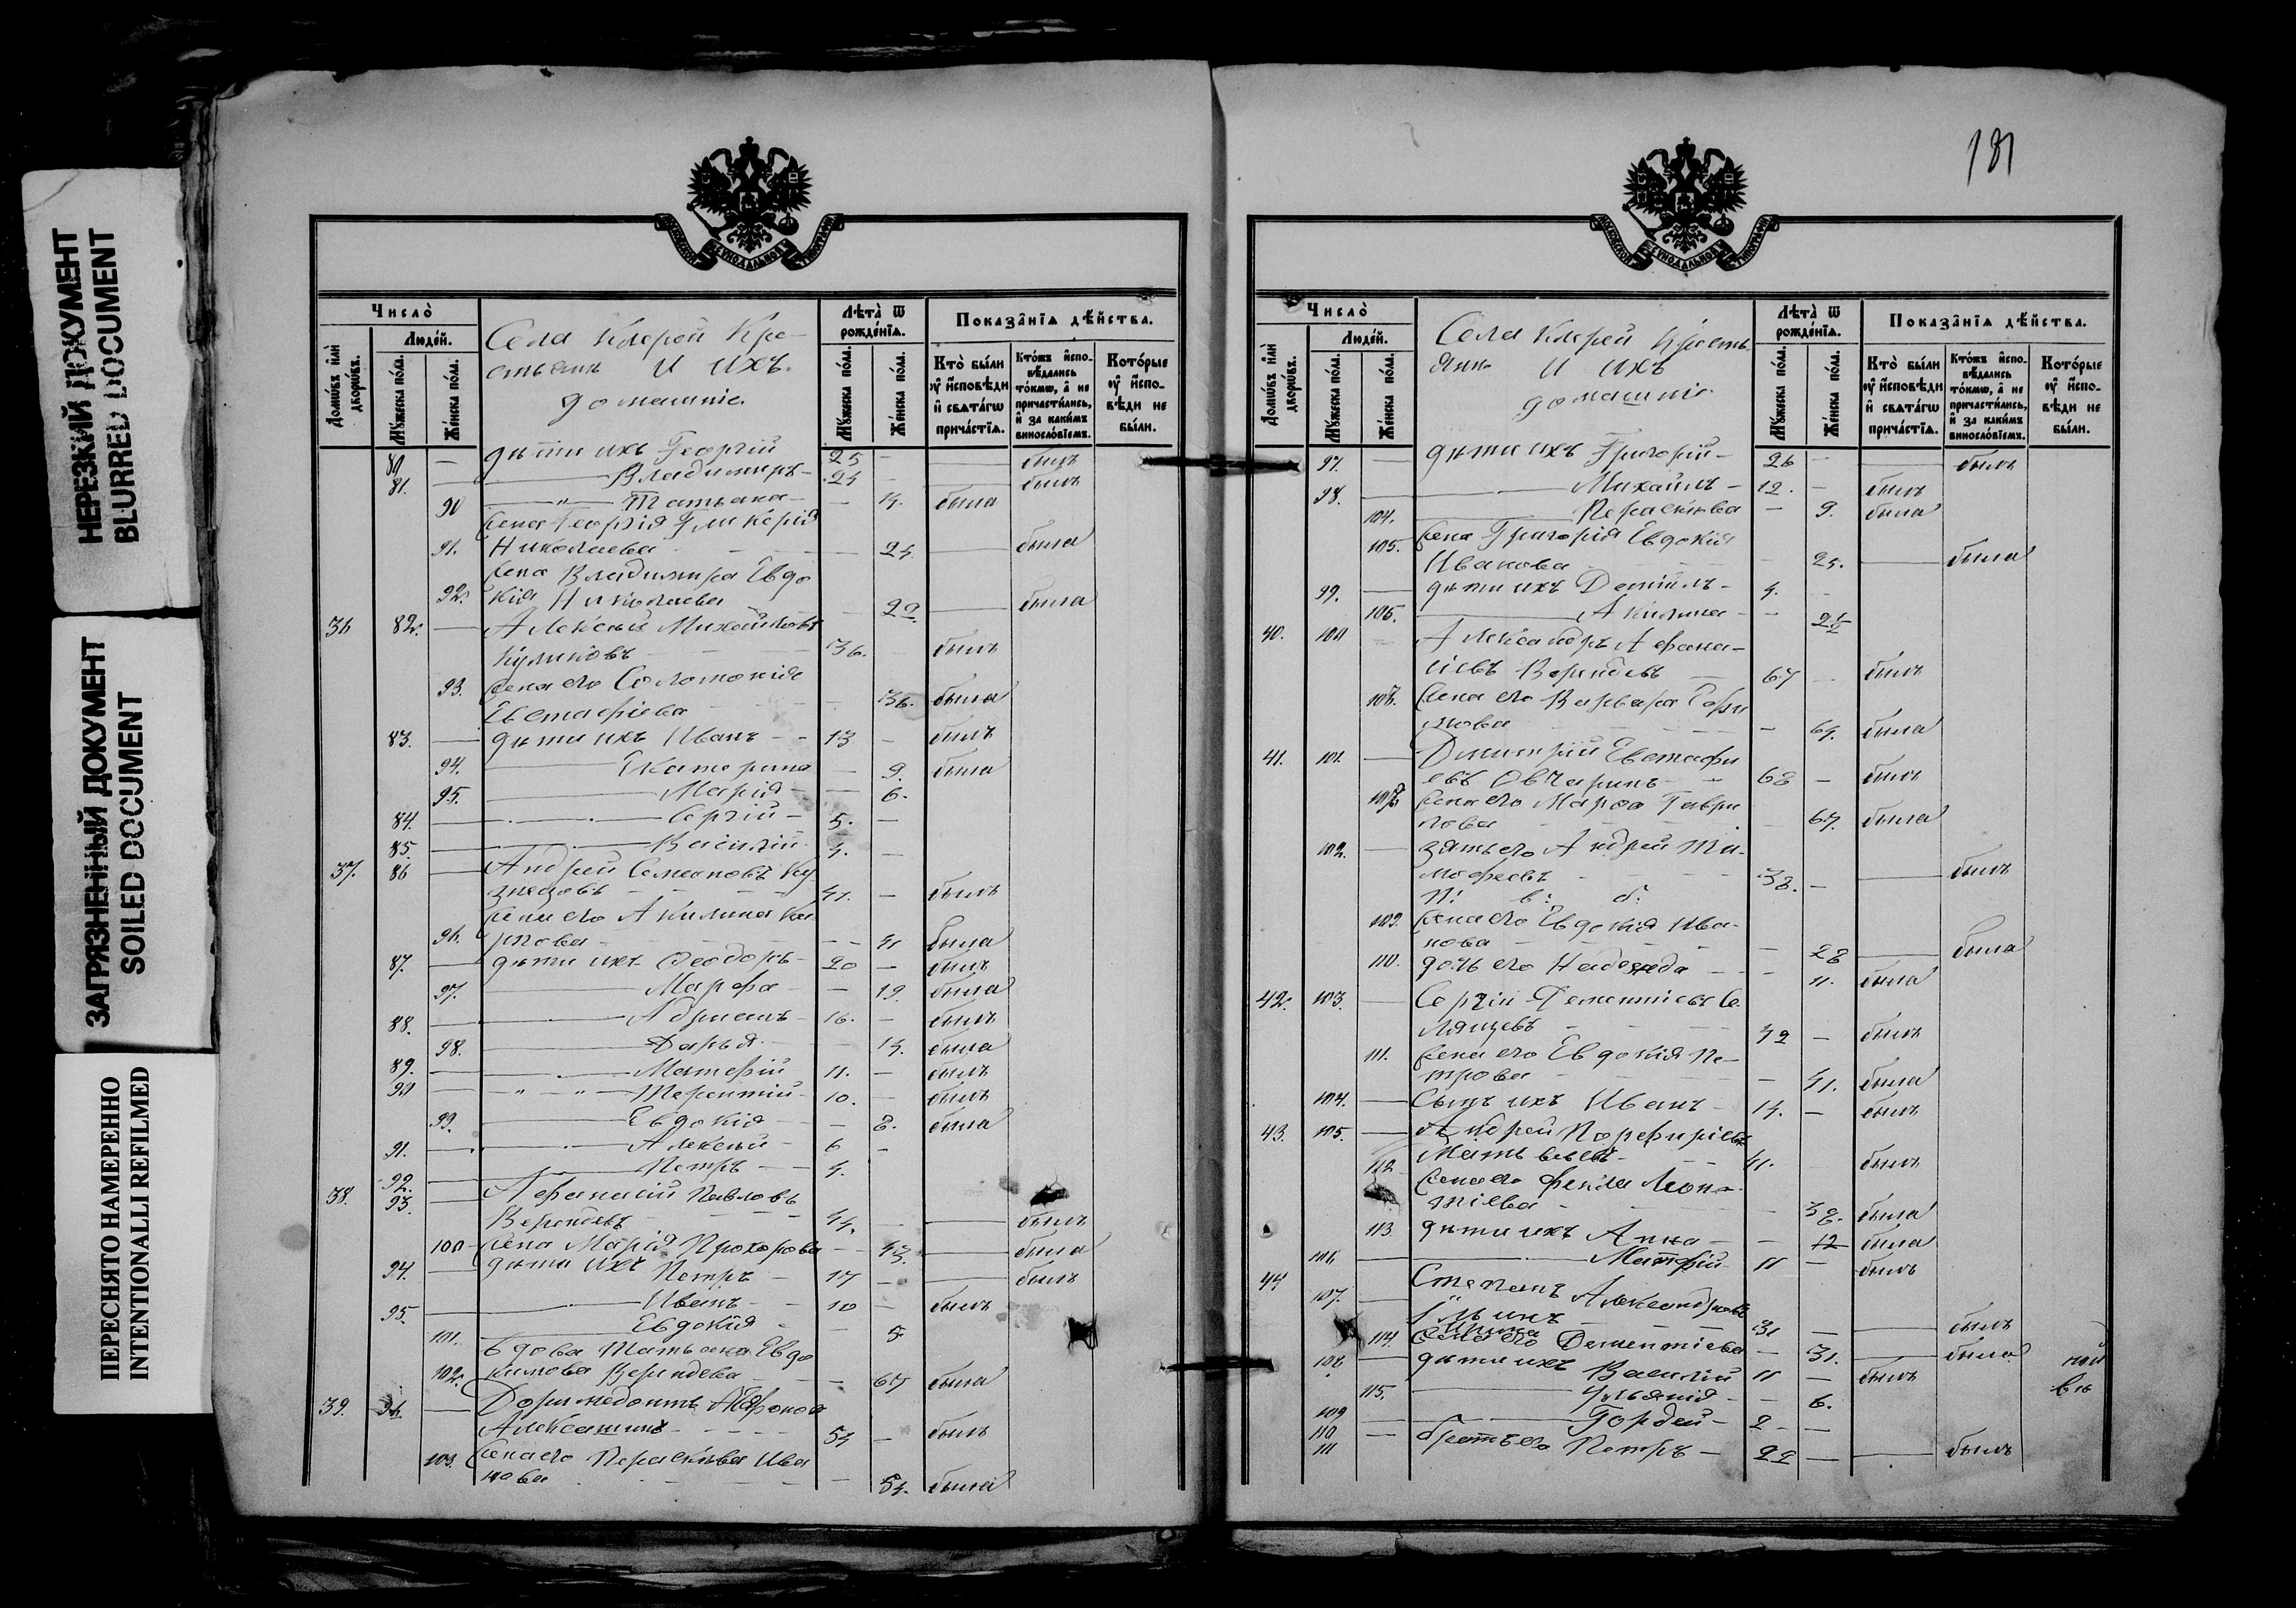 НЕРЕЗКИЙ ДОКУМЕНТ
BLURRED DOCUMENT
ЗАГРЯЗНЕННЫЙ ДОКУМЕНТ
SOILED DOCUMENT
ПЕРЕСНЯТО НАМЕРЕННО
INTENTIONALLI REFILMED
МОСКОВСКОЙ СѴНОДАЛЬНОЙ ТИПОГРАФІИ
Число̀
Домѡ́въ и҆лѝ дворѡ́въ.
Люде́й.
Мꙋ́жеска по́ла.
Же́нска по́ла.
Села Ключей Кре-
стьяне и ихъ
домашніе.
Лѣ́та ѿ рожде́нїѧ.
Мꙋ́жеска по́ла.
Же́нска по́ла.
Показа̑нїѧ дѣ́йства.
Кто̀ бы́ли ᲂу҆ и҆сповѣ́ди и҆ свѧта́гѡ прича́стїѧ.
Кто́жъ и҆спо-вѣ́дались то́кмѡ, а҆ не причасти́лись, и҆ за каки́мъ винослові́емъ.
Кото́рые ᲂу҆ и҆спо-вѣ́ди не бы́ли.
80 — дѣти ихъ Георгій 25 — — былъ
81. — Владимиръ 24 — — былъ
90 — " — Татьяна — 14. была
жена Георгія Гликерія
91. Николаева — 24. — была
жена Владимира Евдо
92. кія Николаева — 22 — была
36 82. — Алексѣй Михайловъ
Куликовъ 36. — былъ
93. жена его Соломонія
Евстафіева — 36. была
83. — дѣти ихъ Иванъ 13 — былъ
94. Екатерина — 9. была
95. Марія — 6.
84. Сергій 5. —
85. Василій 4. —
37. 86 — Андрей Семеновъ Ку
знецовъ 41. — былъ
жена его Акилина Ка
96. рпова — 41 была
87. — дѣти ихъ Ѳеодоръ 20 — былъ
97. Марфа — 19. была
88. Адріанъ 16. — былъ
98. Дарья — 14. была
89. Матѳей 11. — былъ
90 — " — " — Терентій 10. — былъ
99. Евдокія — 8. была
91. Алексѣй 6 —
92. Петръ 4.
38. 93. — Афанасій Павловъ
Вериндевъ 44. — — былъ
100 жена Марія Прохорова — 43. — была
94. — дѣти ихъ Петръ 17 — — былъ
95. Иванъ 10 — былъ
101. Евдокія — 5
вдова Татьяна Евдо
102. кимова Вериндева — 67 была
39. 96. — Доримедонтъ
Алексашинъ 54 — былъ
103. жена его Параскева Ива
нова — 54. была
181
МОСКОВСКОЙ СѴНОДАЛЬНОЙ ТИПОГРАФІИ
Число̀
Домѡ́въ и҆лѝ дворѡ́въ.
Люде́й.
Мꙋ́жеска по́ла.
Же́нска по́ла.
Села Ключей Кресть
яне и ихъ
домашніе.
Лѣ́та ѿ рожде́нїѧ.
Мꙋ́жеска по́ла.
Же́нска по́ла.
Показа̑нїѧ дѣ́йства.
Кто̀ бы́ли ᲂу҆ и҆сповѣ́ди и҆ свѧта́гѡ прича́стїѧ.
Кто́жъ и҆спо-вѣ́дались то́кмѡ, а҆ не причасти́лись, и҆ за каки́мъ винослові́емъ.
Кото́рые ᲂу҆ и҆спо-вѣ́ди не бы́ли.
97. — дѣти ихъ Григорій 26 — — былъ
98. Михаилъ 12. — былъ
104. Параскева — 9. была
105. жена Григорія Евдокія
Иванова — 25. — была
99. — дѣти ихъ Даніилъ 4. —
106. Акилина —
40. 100 Александръ Афана-
сіевъ Вериндевъ 67 — былъ
107. жена его Варвара
— 64. была
41. 101. — Димитрій Евстафи
евъ Овчаринъ 68 — былъ
108 жена его Марфа Гаври
лова — 67. была
102. — зять его Андрей Ти-
мофеевъ 38. — — былъ
109. жена его Евдокія Ива-
нова — 28 — была
110. дочь его Надежда — 11. была
42. 103. — Сергій Дементіевъ Се
лянцевъ 42 — былъ
111. жена его Евдокія Пе-
трова — 41. была
104. — Сынъ ихъ Иванъ 14. — былъ
43. 105. — Андрей Порфиріевъ
Матвеевъ 41. былъ
112 жена его Фекла Леон-
тіева — 38. была
113. дѣти ихъ Анна — 12 была
106 Матѳей 11 — былъ
44 107. — Степанъ Александровъ
31 — — былъ
114. жена его Ирина Дементіева — 31. — была
108. — дѣти ихъ Василій 11 — былъ
115. Ульянія — 6.
109 Гордей 2 —
110
111 братъ его Петръ 22 — — былъ